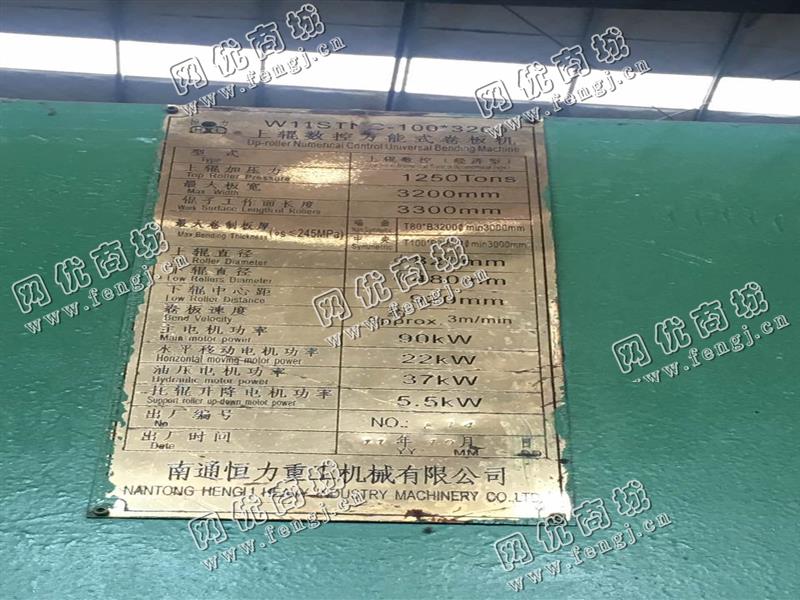 W11STNC-100*3200
上辊数控万能式卷板机
Up-roller Numerical Control Universal Bending Machine
型式 上辊数控(经济型)
Type
上辊加压力 1250Tons
Top Roller Pressure
最大板宽 3200mm
Max Width
辊子工作面长度 3300mm
Work Surface Length of Rollers
最大卷制板厚 (σs≤245MPa) 端曲 T80*B3200 min3000mm
Max Bending Thickness 中央 min3000mm
Symmetric
上辊直径 mm
Roller Diameter
下辊直径 mm
Low Rollers Diameter
下辊中心距 mm
Low Roller Distance
卷板速度 Approx. 3m/min
Bend Velocity
主电机功率 90kW
Main motor power
水平移动电机功率 22kW
Horizontal moving motor power
油压电机功率 37kW
Hydraulic motor power
托辊升降电机功率 5.5kW
Support roller up-down motor power
出厂编号 NO.:
No
出厂时间 年 月 日
Date YY MM DD
南通恒力重工机械有限公司
NANTONG HENGLI HEAVY INDUSTRY MACHINERY CO.LTD
网优商城
www.fengj.cn
网优商城
www.fengj.cn
网优商城
www.fengj.cn
网优商城
www.fengj.cn
网优商城
www.fengj.cn
网优商城
www.fengj.cn
网优商城
www.fengj.cn